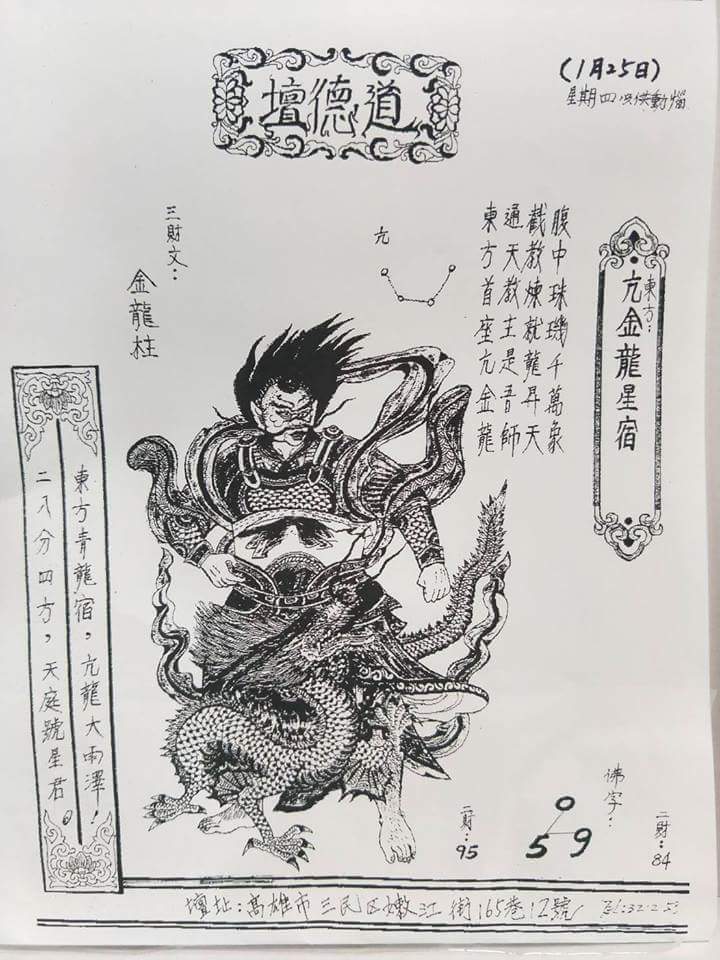 道德壇
(1月25日)
星期四 供動腦
東方：
亢金龍星宿
腹中珠璣千萬象
截教煉就龍昇天
通天教主是吾師
東方首座亢金龍
亢
三財文：
金龍柱
東方青龍宿，亢龍大雨澤！
二八分四方，天庭號星君。
二財：84
佛字：
0
5 9
二財：95
壇址：高雄市三民区嫩江街165巷12號